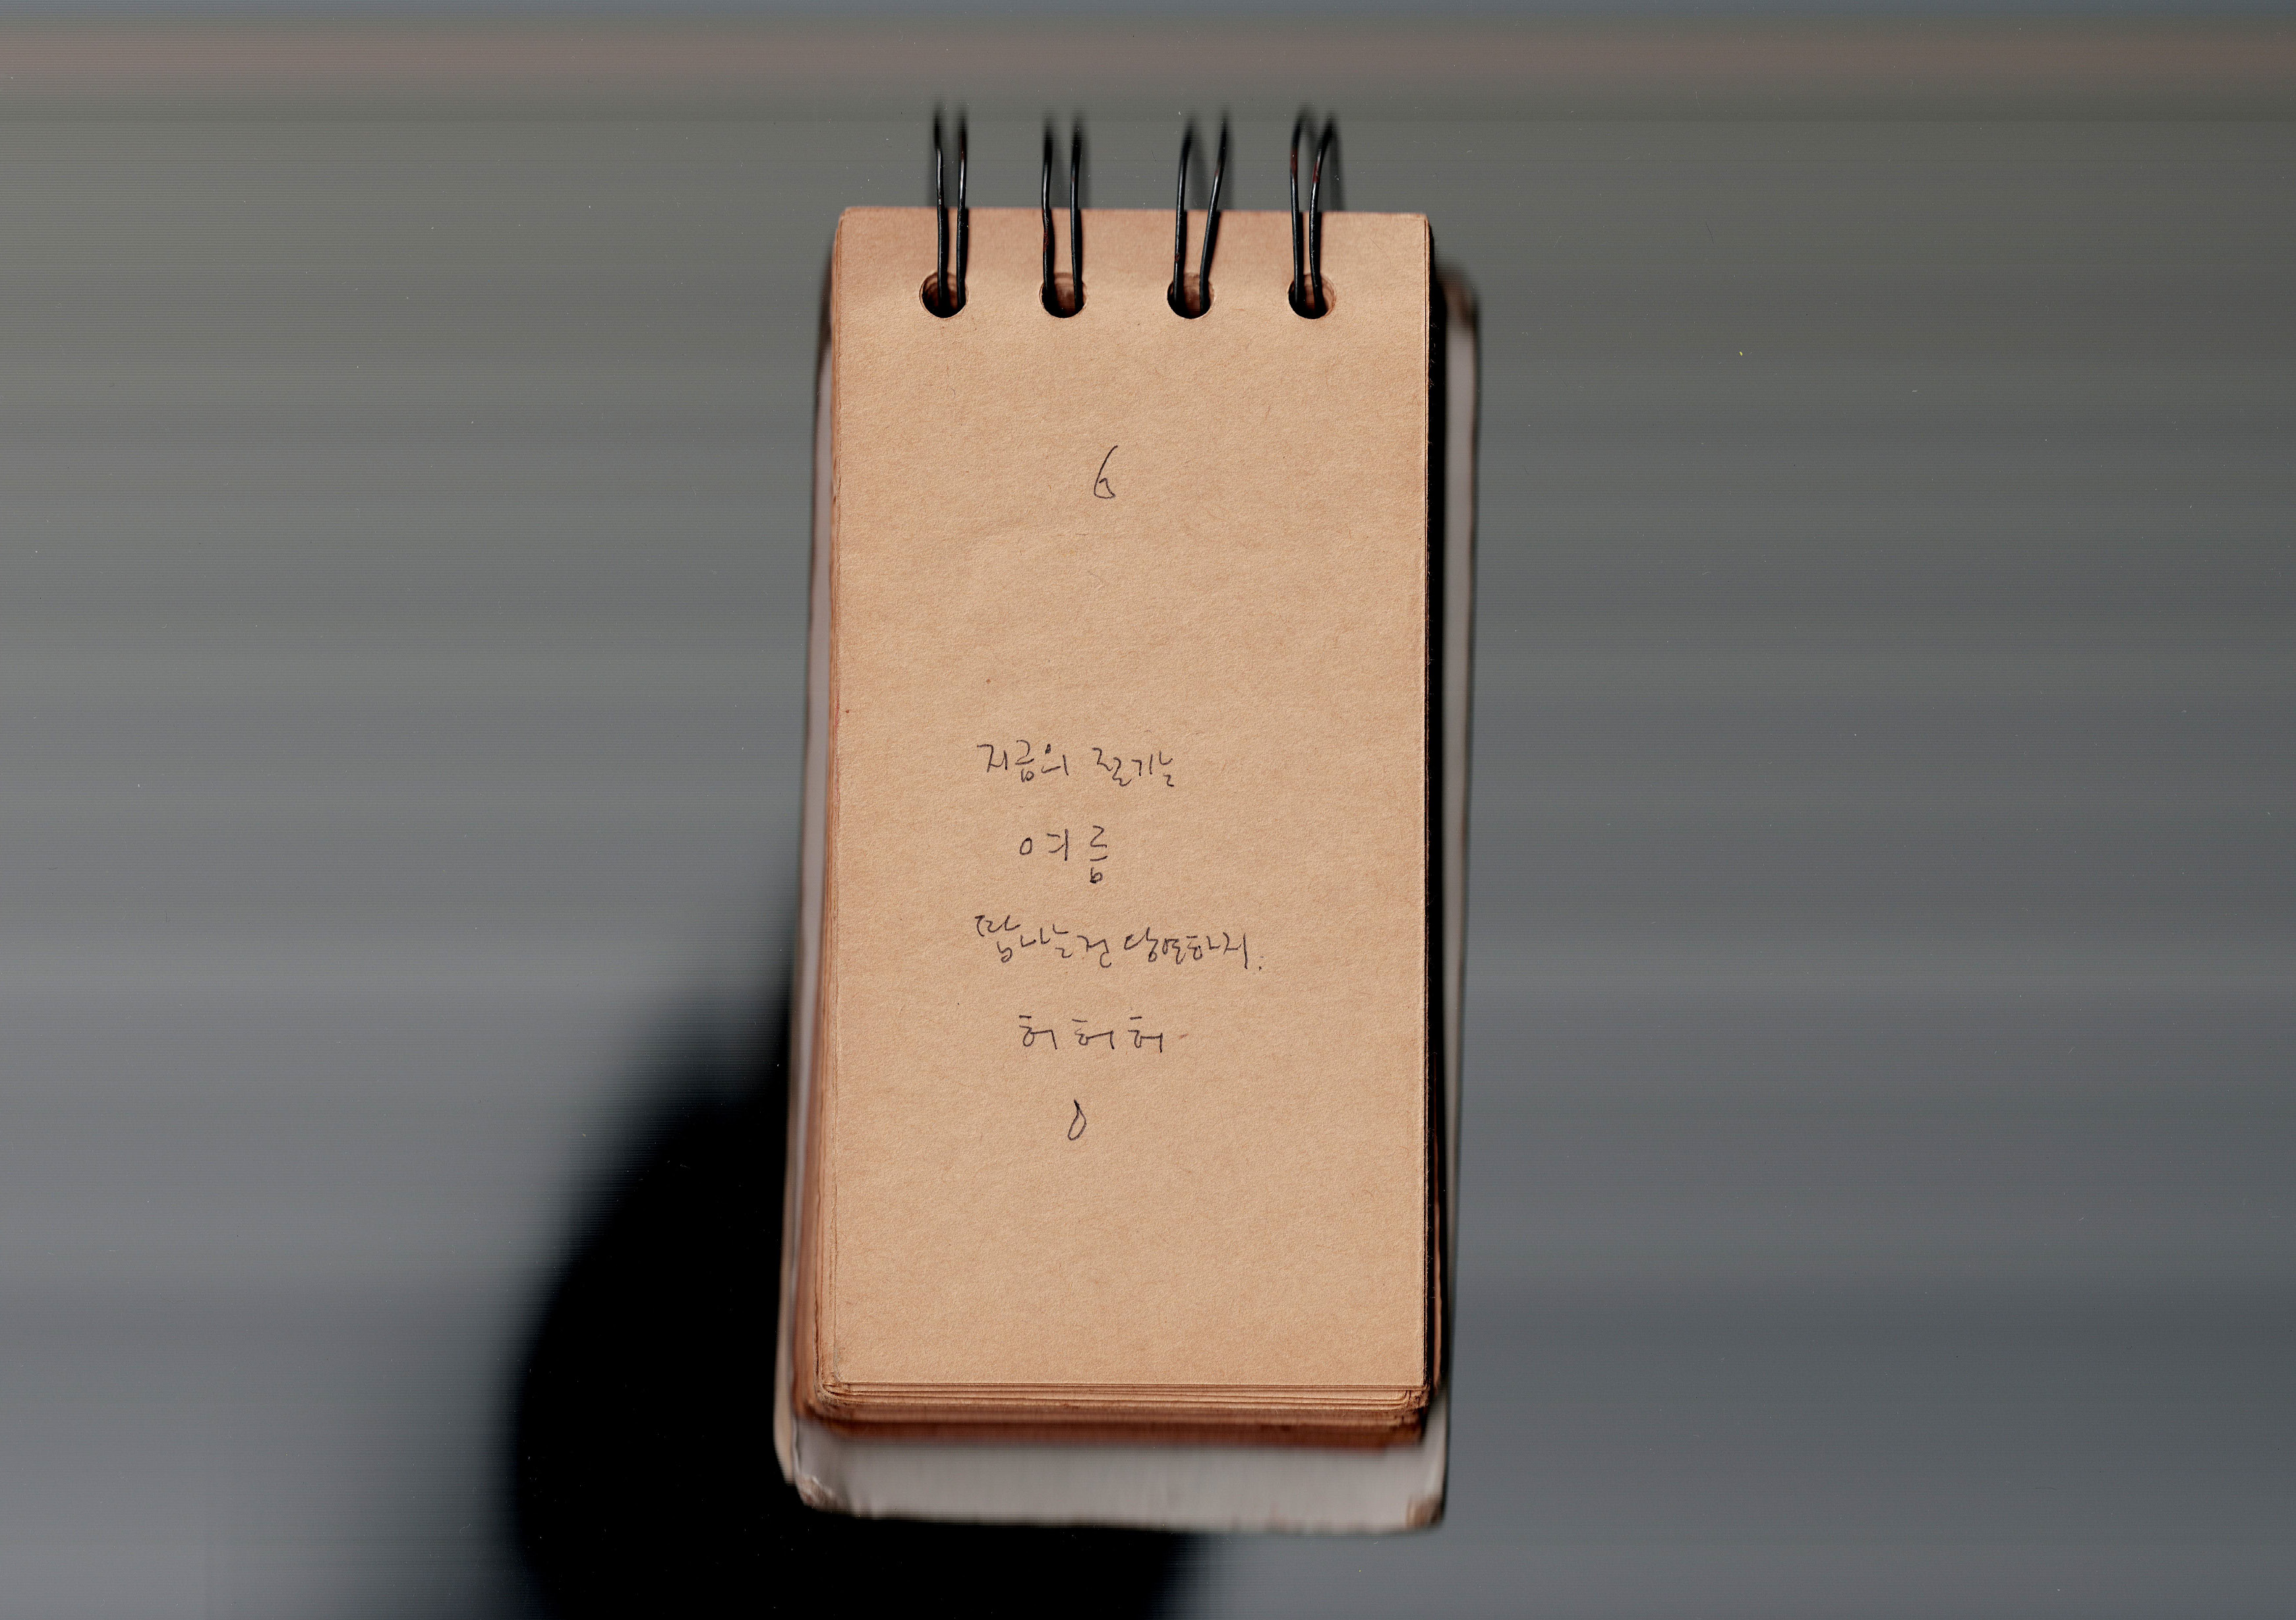 6
지금의 줄기는
여름
땀나는건 당연하지.
허허허
0